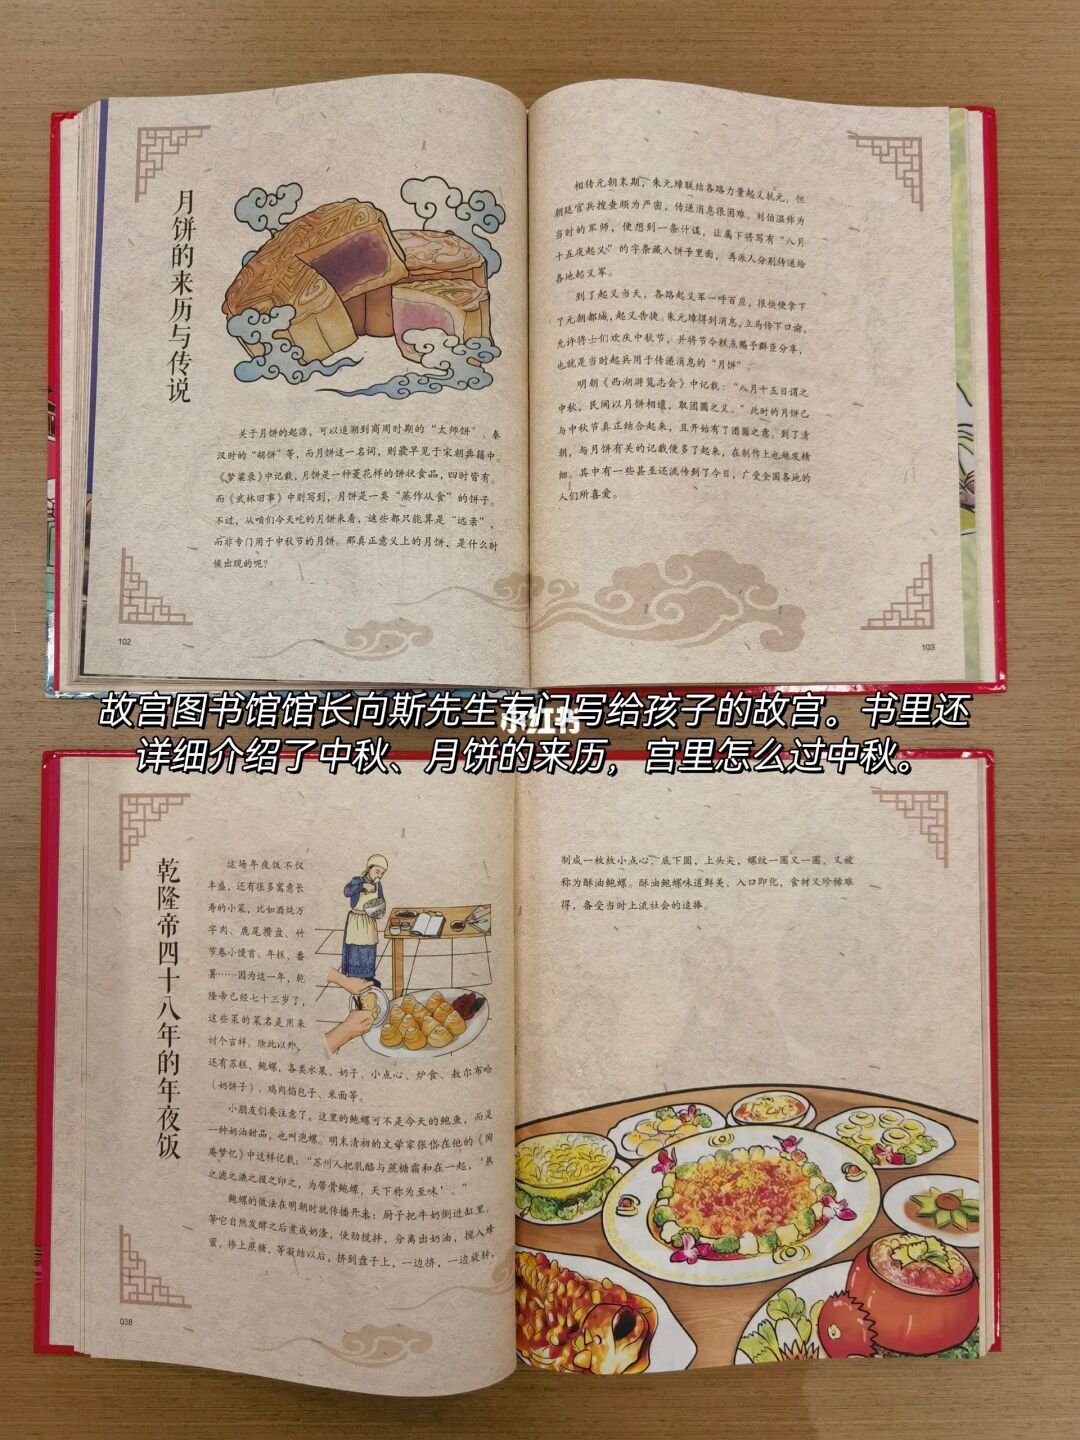 月饼的来历与传说
关于月饼的起源，可以追溯到商周时期的“太师饼”、秦
汉时的“胡饼”等，而月饼这一名词，则最早见于宋朝典籍中。
《梦粱录》中记载，月饼是一种菱花样的饼状食品，四时皆有。
而《武林旧事》中则写到，月饼是一类“蒸作从食”的饼子。
不过，从咱们今天吃的月饼来看，这些都只能算是“远亲”，
而非专门用于中秋节的月饼。那真正意义上的月饼，是什么时
候出现的呢？
102
相传元朝末期，朱元璋联结各路力量起义抗元，但
朝廷官兵搜查颇为严密，传送消息很困难。刘伯温作为
当时的军师，便想到一条计谋，让属下将写有“八月
十五夜起义”的字条藏入饼子里面，再派人分别传送给
各地起义军。
到了起义当天，各路起义军一呼百应，很快便拿下
了元朝都城，起义告捷。朱元璋得到消息，立马传下口谕，
允许将士们欢庆中秋节，并将节令糕点赐予群臣分享，
也就是当时起兵用于传递消息的“月饼”。
明朝《西湖游览志会》中记载：“八月十五日谓之
中秋，民间以月饼相遗，取团圆之义。”此时的月饼已
与中秋节真正结合起来，且开始有了团圆之意。到了清
朝，与月饼有关的记载便多了起来，在制作上也越发精
细。其中有一些甚至还流传到了今日，广受全国各地的
人们所喜爱。
103
故宫图书馆馆长向斯先生有门写给孩子的故宫。书里还
详细介绍了中秋、月饼的来历，宫里怎么过中秋。
小红书
乾隆帝四十八年的年夜饭
这场年夜饭不仅
丰盛，还有很多寓意长
寿的小菜，比如酒炖万
字肉、鹿尾攒盘、竹
节卷小馒首、年糕、番
薯……因为这一年，乾
隆帝已经七十三岁了，
这些菜的菜名是用来
讨个吉祥。除此以外，
还有苏糕、鲍螺，各类水果、奶子、小点心、炉食、敖尔布哈
（奶饼子）、鸡肉馅包子、米面等。
小朋友们要注意了，这里的鲍螺可不是今天的鲍鱼，而是
一种奶油甜品，也叫泡螺。明末清初的文学家张岱在他的《陶
庵梦忆》中这样记载：“苏州人把乳酪与蔗糖霜和在一起，‘熬
之滤之漉之掇之印之，为带骨鲍螺，天下称为至味’。”
鲍螺的做法在明朝时就传播开来：厨子把牛奶倒进缸里，
等它自然发酵之后煮成奶渣，使劲搅拌，分离出奶油，搅入蜂
蜜，掺上蔗糖，等凝结以后，挤到盘子上，一边挤，一边旋转，
038
制成一枚枚小点心，底下圆，上头尖，螺纹一圈又一圈，又被
称为酥油鲍螺。酥油鲍螺味道鲜美，入口即化，食材又珍稀难
得，备受当时上流社会的追捧。